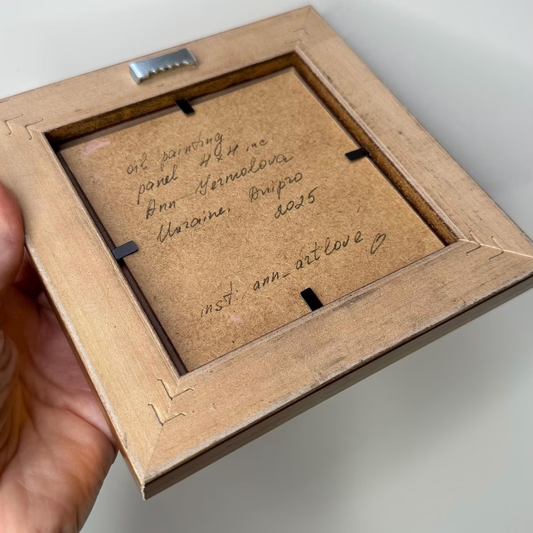 oil painting
panel 4*4 inc
Ann Yermolova
Ukraine, Dnipro
2025
inst: ann_artlove